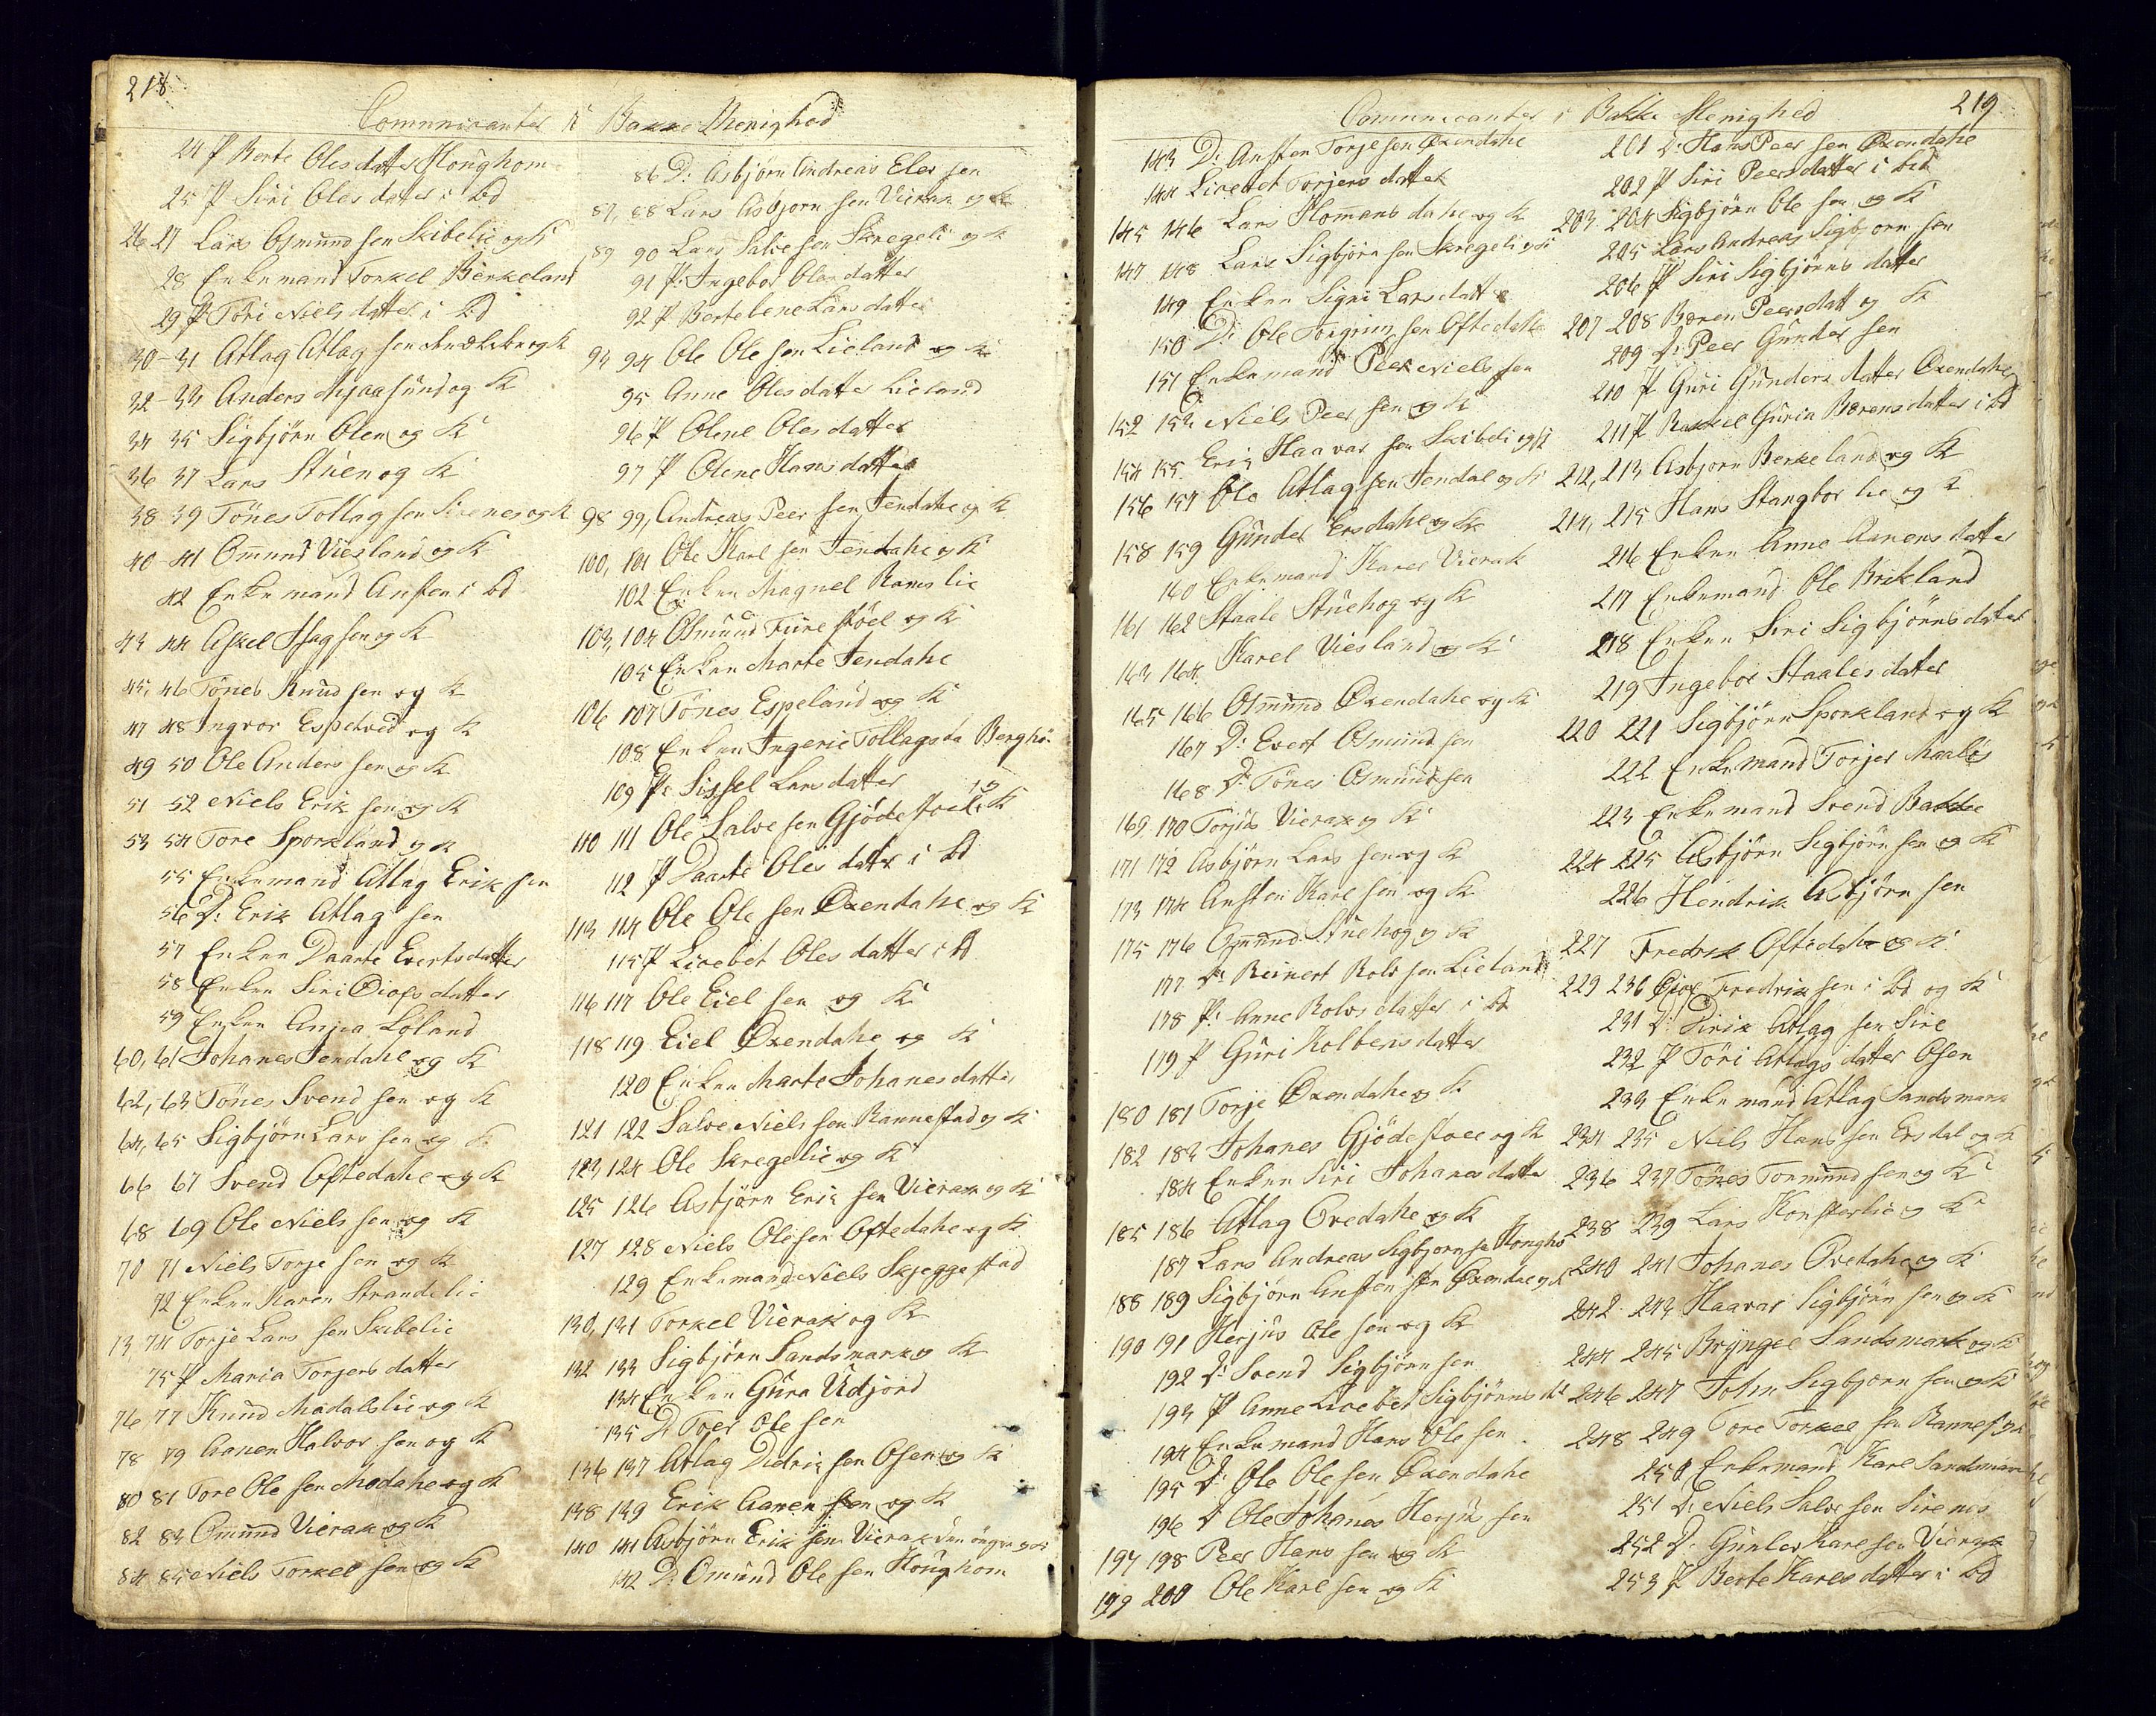 218
Comunicanter i Bakke Menighed
24 P Berte Olesdatter Houghom
25 P Siri Olesdatter i bd
26 27 Lars Osmund sen Skibelie og K
28 Enkemand Torkel Birkeland
29 P Tori Nielsdatter i bd
30-31 Atlag Atlag sen og K
32-33 Anders Mjaasund og K
34 35 Sigbjörn Olsen og K
36 37 Lars Stuen og K
38 39 Tönes Tollag sen Sirenes og K
40-41 Omund Viesland og K
42 Enkemand Ansten i bd
43 44 Askel Isag sen og K
45, 46 Tönes Knud sen og K
47 48 Ingvor Espetved og K
49 50 Ole Anders sen og K
51 52 Niels Erik sen og K
53 54 Tore Sporkland og K
55 Enkemand Atlag Erik sen
56 D: Erik Atlag sen
57 Enken Daarte Evertsdatter
58 Enken Siri Diofsdatter
59 Enken Anna Löland
60, 61 Johanes Jendahe og K
62,-63 Tönes Svend sen og K
64, 65 Sigbjörn Lars sen og K
66 67 Svend Oftedahe og K
68 69 Ole Niels sen og K
70 71 Niels Torje sen og K
72 Enken Karen Strandelie
73 74 Torje Lars sen Skibelie
75 P Maria Torjersdatter
76 77 Knud Madalslie og K
78 79 Aanen Halvor sen og K
80 81 Tore Ole sen Modahe og K
82 83 Omund Vierak og K
84 85 Niels Torkel sen og K
86 D: Asbjörn Andreas Eler sen
87, 88 Lars Asbjorn sen Vierak og K
89 90 Lars Salve sen Skregeli og K
91 P: Ingebor Olesdatter
92 P Bertelene Larsdatter
93 94 Ole Ole sen Lieland og K
95 Anne Olesdatter Lieland
96 P Olene Olesdatter
97 P Olene Hansdatter
98 99, Andreas Peer sen Jendahe og K
100, 101 Ole Karl sen Jendahe og K
102 Enken Magnel Ramslie
103, 104 Osmund Furestöel og K
105 Enken Marte Jendahe
106 107 Tönes Espeland og K
108 Enken Ingerie Tollagsda Bergho
109 P: Sissel Larsdatter
110 111 Ole Salve sen Gjödestoel og K
112 P Daarte Olesdatter i bd
113 114 Ole Ole sen Oxendahe og K
115 P Lisebet Olesdatter i bd
116 117 Ole Eiel sen og K
118 119 Eiel Oxendahe og K
120 Enken Marte Johanesdatter
121 122 Salve Niels sen Rannestad og K
123 124 Ole Skregelie og K
125 126 Asbjörn Erik sen Vierak og K
127 128 Niels Ole sen Oftedahe og K
129 Enkemand Niels Skjeggestad
130, 131 Torkel Vierak og K
132 133 Sigbjörn Sandsmark og K
134 Enken Gura Udjord
135 D Toer Ole sen
136 137 Atlag Didrik sen Osen og K
138 139 Erik Aanen sen og K
140 141 Asbjörn Erik sen Vierak den öngre og K
142 D: Omund Ole sen Houghom
219
Comunicanter i Bakke Menighed
143 D: Ansten Torje sen Oxendahe
144 Lisebet Torjersdatter
145 146 Lars Homansdahe og K
147 148 Lars Sigbjörn sen Skregeli og K
149 Enken Signi Larsdatter
150 D: Ole Torgrim sen Oftedahe
151 Enkemand Peer Niels sen
152 153 Niels Peer sen og K
154 155 Erik Haavar sen Skibeli og K
156 157 Ole Atlag sen Jendal og K
158 159 Gunder Ersdahe og K
160 Enkemand Karel Vierak
161 162 Staale Stuehog og K
163 164 Karel Viesland og K
165 166 Osmund Oxendahe og K
167 D: Evert Osmund sen
168 D: Tönes Osmund sen
169 170 Torjus Vierak og K
171 172 Asbjörn Lars sen og K
173 174 Ansten Karl sen og K
175 176 Omund Stuehog og K
177 D: Reinert Rolv sen Lieland
178 P: Anne Rolvsdatter i bd
179 P Guri Kolbensdatter
180 181 Torje Oxendahe og K
182 183 Johanes Gjödestoel og K
184 Enken Siri Johanesdatter
185 186 Atlag Ovedahe og K
187 Lars Andreas Sigbjorn sen Hongho
188 189 Sigbjörn Ansten sen Oxendae og K
190 191 Herjus Ole sen og K
192 D: Svend Sigbjörn sen
193 P Anne Lisebet Sigbjörnsdt
194 Enkemand Hans Ole sen
195 D: Ole Ole sen Oxendahe
196 D Ole Johanes Herjus sen
197 198 Peer Hans sen og K
199 200 Ole Karl sen og K
201 D: Hans Peer sen Oxendahe
202 P Siri Peersdatter i bd
203 204 Sigbjörn Ole sen og K
205 Lars Andreas Sigbjorn sen
206 P Siri Sigbjörnsdatter
207 208 Beren Peersdatt og K
209 D: Peer Gunder sen
210 P Guri Gundersdatter Oxendahe
211 P Rakkel Guria Berensdatter i bd
212, 213 Asbjorn Berkeland og K
214, 215 Hans Stangborlie og K
216 Enken Anne Aanensdatter
217 Enkemand Ole Brikland
218 Enken Siri Sigbjörnsdatter
219 Ingebor Staalesdatter
220 221 Sigbjörn Sporkland og K
222 Enkemand Torjer
223 Enkemand Svend Bakke
224 225 Asbjörn Sigbjörn sen og K
226 Hendrik Asbjörn sen
227 Fredrik Oftedahe og K
229 230 Eiol Fredrik sen i bd og K
231 D: Dirik Atlag sen Sire
232 P Töri Atlagsdatter Osen
233 Enkemand Atlag Sandsmark
234 235 Niels Hans sen Ersdal og K
236 237 Tönes Tormund sen og K
238 239 Lars Honsterlie og K
240 241 Johanes Ovedahe og K
242 243 Haavar Sigbjörn sen og K
244 245 Bryngel Sandsmark og K
246 247 John Sigbjorn sen og K
248 249 Tore Torkel sen Rannest og K
250 Enkemand Karl Sandsmark
251 D: Niels Salve sen Sirenes
252 D: Gunler Karl sen Vierak
253 P Berte Karlsdatter i bd